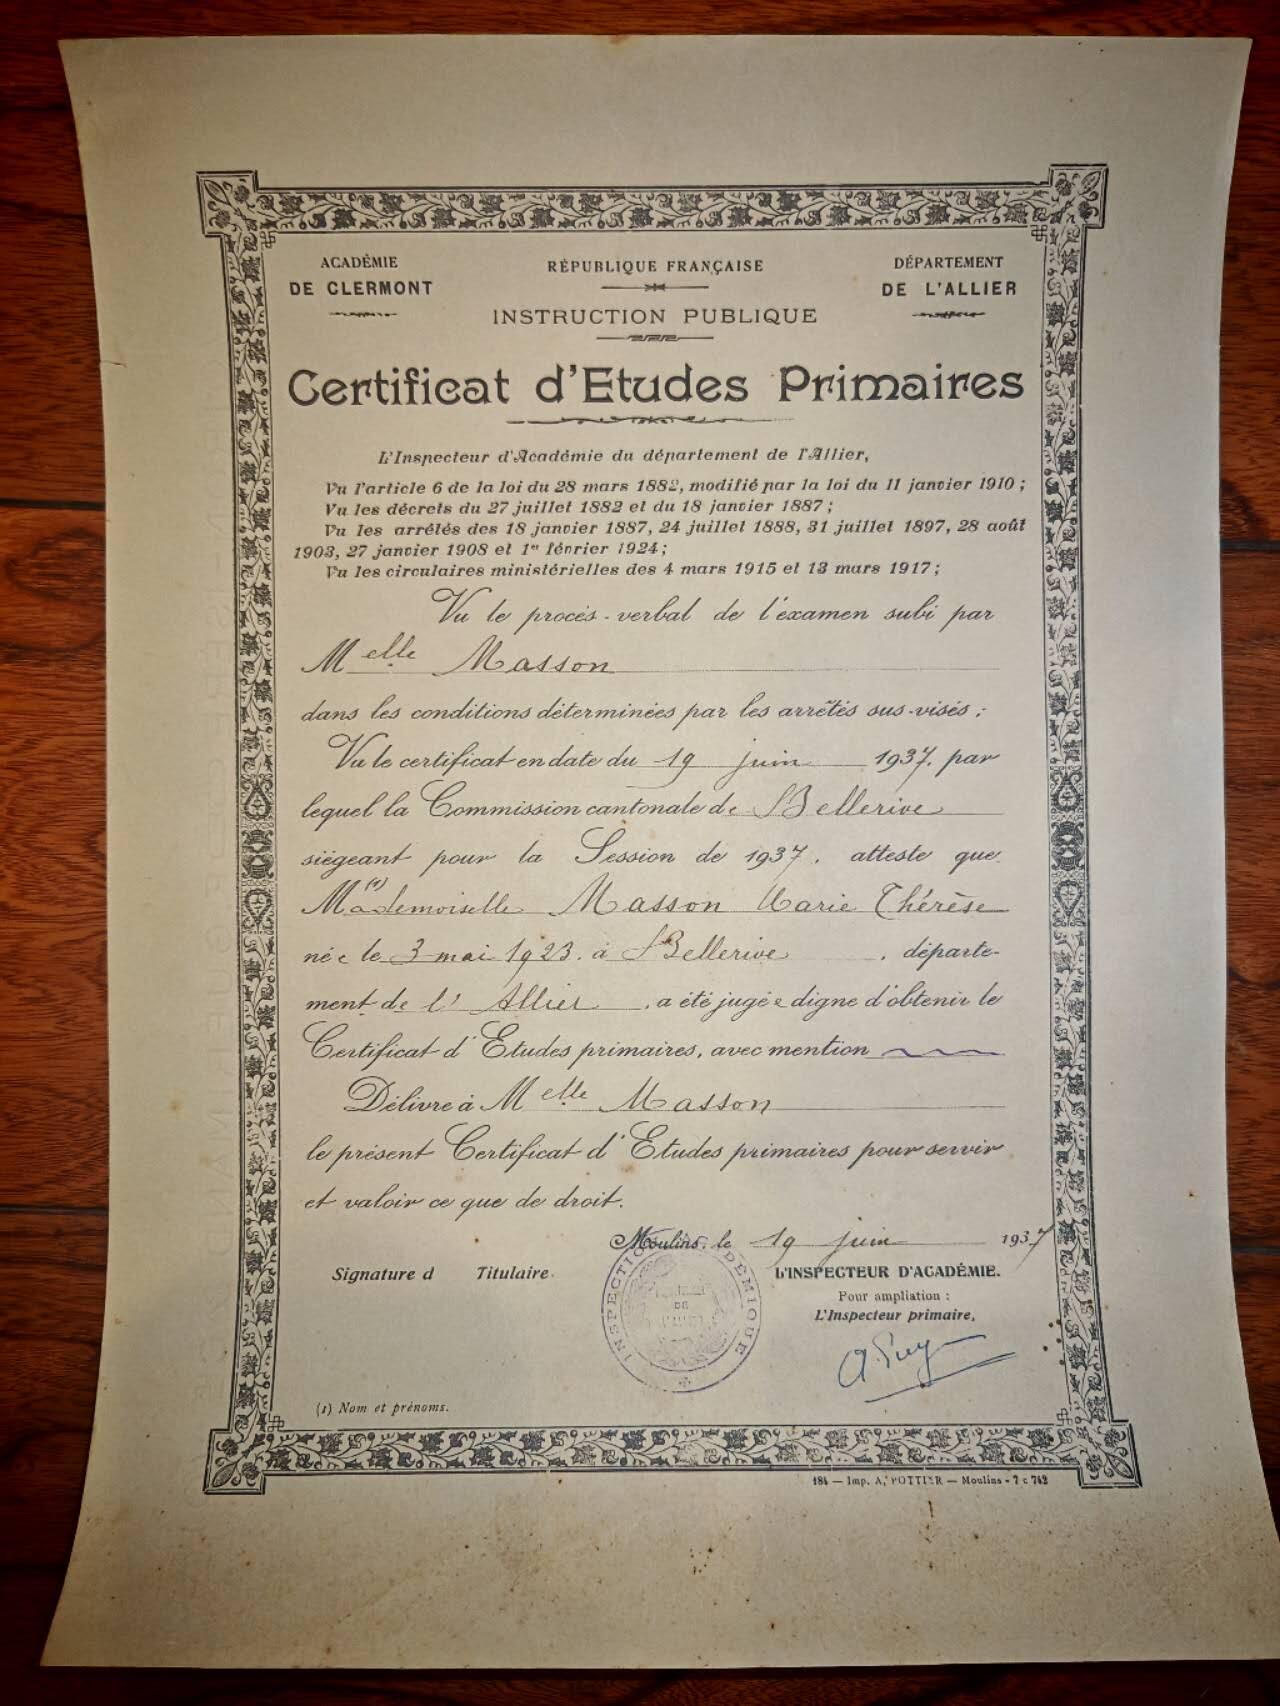 ACADÉMIE
DE CLERMONT
RÉPUBLIQUE FRANÇAISE
INSTRUCTION PUBLIQUE
DÉPARTEMENT
DE L'ALLIER
Certificat d'Etudes Primaires
L'Inspecteur d'Académie du département de l'Allier,
Vu l'article 6 de la loi du 28 mars 1882, modifié par la loi du 11 janvier 1910 ;
Vu les décrets du 27 juillet 1882 et du 18 janvier 1887 ;
Vu les arrêtés des 18 janvier 1887, 24 juillet 1888, 31 juillet 1897, 28 août
1903, 27 janvier 1908 et 1er février 1924 ;
Vu les circulaires ministérielles des 4 mars 1915 et 13 mars 1917 ;
Vu le procès-verbal de l'examen subi par
Melle Masson
dans les conditions déterminées par les arrêtés sus-visés ;
Vu le certificat en date du 19 juin 1937. par
lequel la Commission cantonale de Bellerive
siégeant pour la Session de 1937, atteste que
M(1)ademoiselle Masson Marie Thérèse
née le 3 mai 1923. à Bellerive, départe-
ment de l'Allier, a été jugée digne d'obtenir le
Certificat d'Etudes primaires, avec mention
Délivre à Melle Masson
le présent Certificat d'Etudes primaires pour servir
et valoir ce que de droit.
Moulins, le 19 juin 1937
Signature d Titulaire.
L'INSPECTEUR D'ACADÉMIE.
Pour ampliation :
L'Inspecteur primaire,
INSPECTION ACADÉMIQUE
DE
(1) Nom et prénoms.
184 — Imp. A. POTTIER — Moulins - 7 c 742